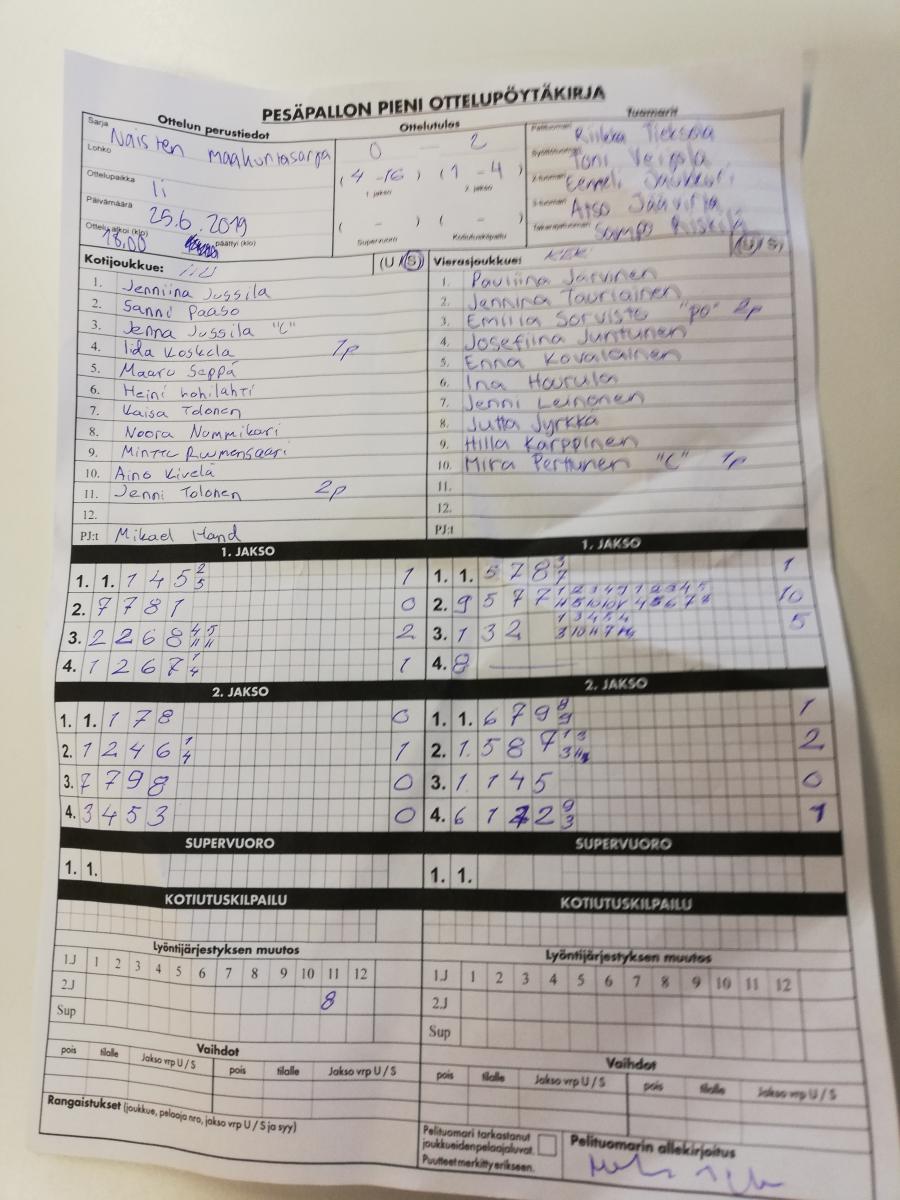 PESÄPALLON PIENI OTTELUPÖYTÄKIRJA
Ottelun perustiedot
Sarja
Naisten maakuntasarja
Lohko
Ottelupaikka
Ii
Päivämäärä
25.6.2019
Ottelu alkoi (klo) päättyi (klo)
18.00
Ottelutulos
0 — 2
(4 - 16) (1 - 4)
1. jakso 2. jakso
( - ) ( - )
Supervuoro Kotiutuskilpailu
Tuomarit
Pelituomari Riikka
Syöttötuomari Toni
2-tuomari Eemeli
3-tuomari
Takarajatuomari Sampo
Kotijoukkue: (U / S)
1. Jenniina Jussila
2. Sanni Paaso
3. Jenna Jussila "C"
4. Iida Koskela 1p
5. Maaru Seppä
6. Heini Lohilahti
7. Kaisa Tolonen
8. Noora Nummikari
9. Minttu
10. Aino Kivelä
11. Jenni Tolonen 2p
12.
PJ:t Mikael Hand
Vierasjoukkue: (U / S)
1. Pauliina Järvinen
2. Jennina Tauriainen
3. Emilia Sorvisto "po" 2p
4. Josefiina Juntunen
5. Enna Kovalainen
6. Ina Haurula
7. Jenni Leinonen
8. Jutta Jyrkkä
9. Hilla Karppinen
10. Mira Perttunen "C" 1p
11.
12.
PJ:t
1. JAKSO
1. 1. 1 4 5 2 5 1
2. 7 7 8 1 0
3. 2 2 6 8 4 5 11 11 2
4. 1 2 6 7 1 4 1
1. JAKSO
1. 1. 5 7 8 3 7 1
2. 9 5 7 7 10
3. 1 3 2 5
4. 8 —
2. JAKSO
1. 1. 1 7 8 0
2. 1 2 4 6 1 4 1
3. 7 7 9 8 0
4. 3 4 5 3 0
2. JAKSO
1. 1. 6 7 9 8 9 1
2. 1 5 8 7 2
3. 1 1 4 5 0
4. 6 1 2 2 9 3 1
SUPERVUORO
1. 1.
SUPERVUORO
1. 1.
KOTIUTUSKILPAILU
KOTIUTUSKILPAILU
Lyöntijärjestyksen muutos
1.J 1 2 3 4 5 6 7 8 9 10 11 12
2.J 8
Sup
Lyöntijärjestyksen muutos
1.J 1 2 3 4 5 6 7 8 9 10 11 12
2.J
Sup
Vaihdot
pois tilalle Jakso vrp U / S pois tilalle Jakso vrp U / S
Vaihdot
pois tilalle Jakso vrp U / S pois tilalle Jakso vrp U / S
Rangaistukset (joukkue, pelaaja nro, jakso vrp U / S ja syy)
Pelituomari tarkastanut
joukkueiden pelaajaluvat.
Puutteet merkitty erikseen.
Pelituomarin allekirjoitus